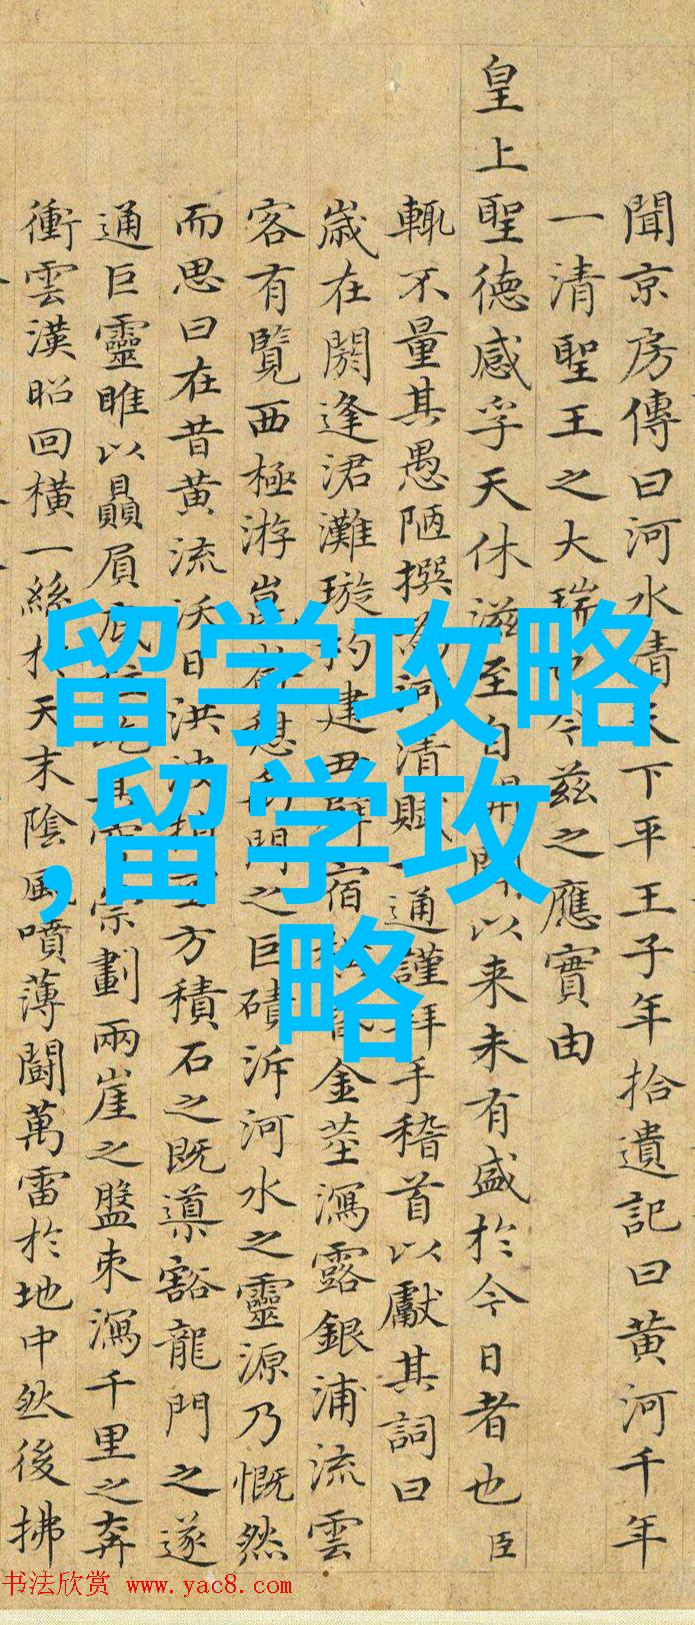 聞京房傳曰河水清天下平王子年拾遺記曰黄河千年
一清聖王之大瑞今兹之應實由
皇上聖德感孚天休滋至自開以来未有盛於今日者也臣
輒不量其愚陋撰河清賦一通謹拜手稽首以獻其詞曰
歲在閼逢涒灘璇杓建宿金莖瀉露銀浦流雲
客有覽西極游崑門之巨磧泝河水之靈源乃慨然
而思曰在昔黄流沃日洪方積石之既導豁龍門之遂
通巨靈睢以贔屓宗劃兩崖之盤束瀉千里之奔
衝雲漢昭回横一絲於天末陰風噴薄鬭萬雷於地中然後拂
留学攻略
,留学攻
略
书法欣赏 www.yac8.com